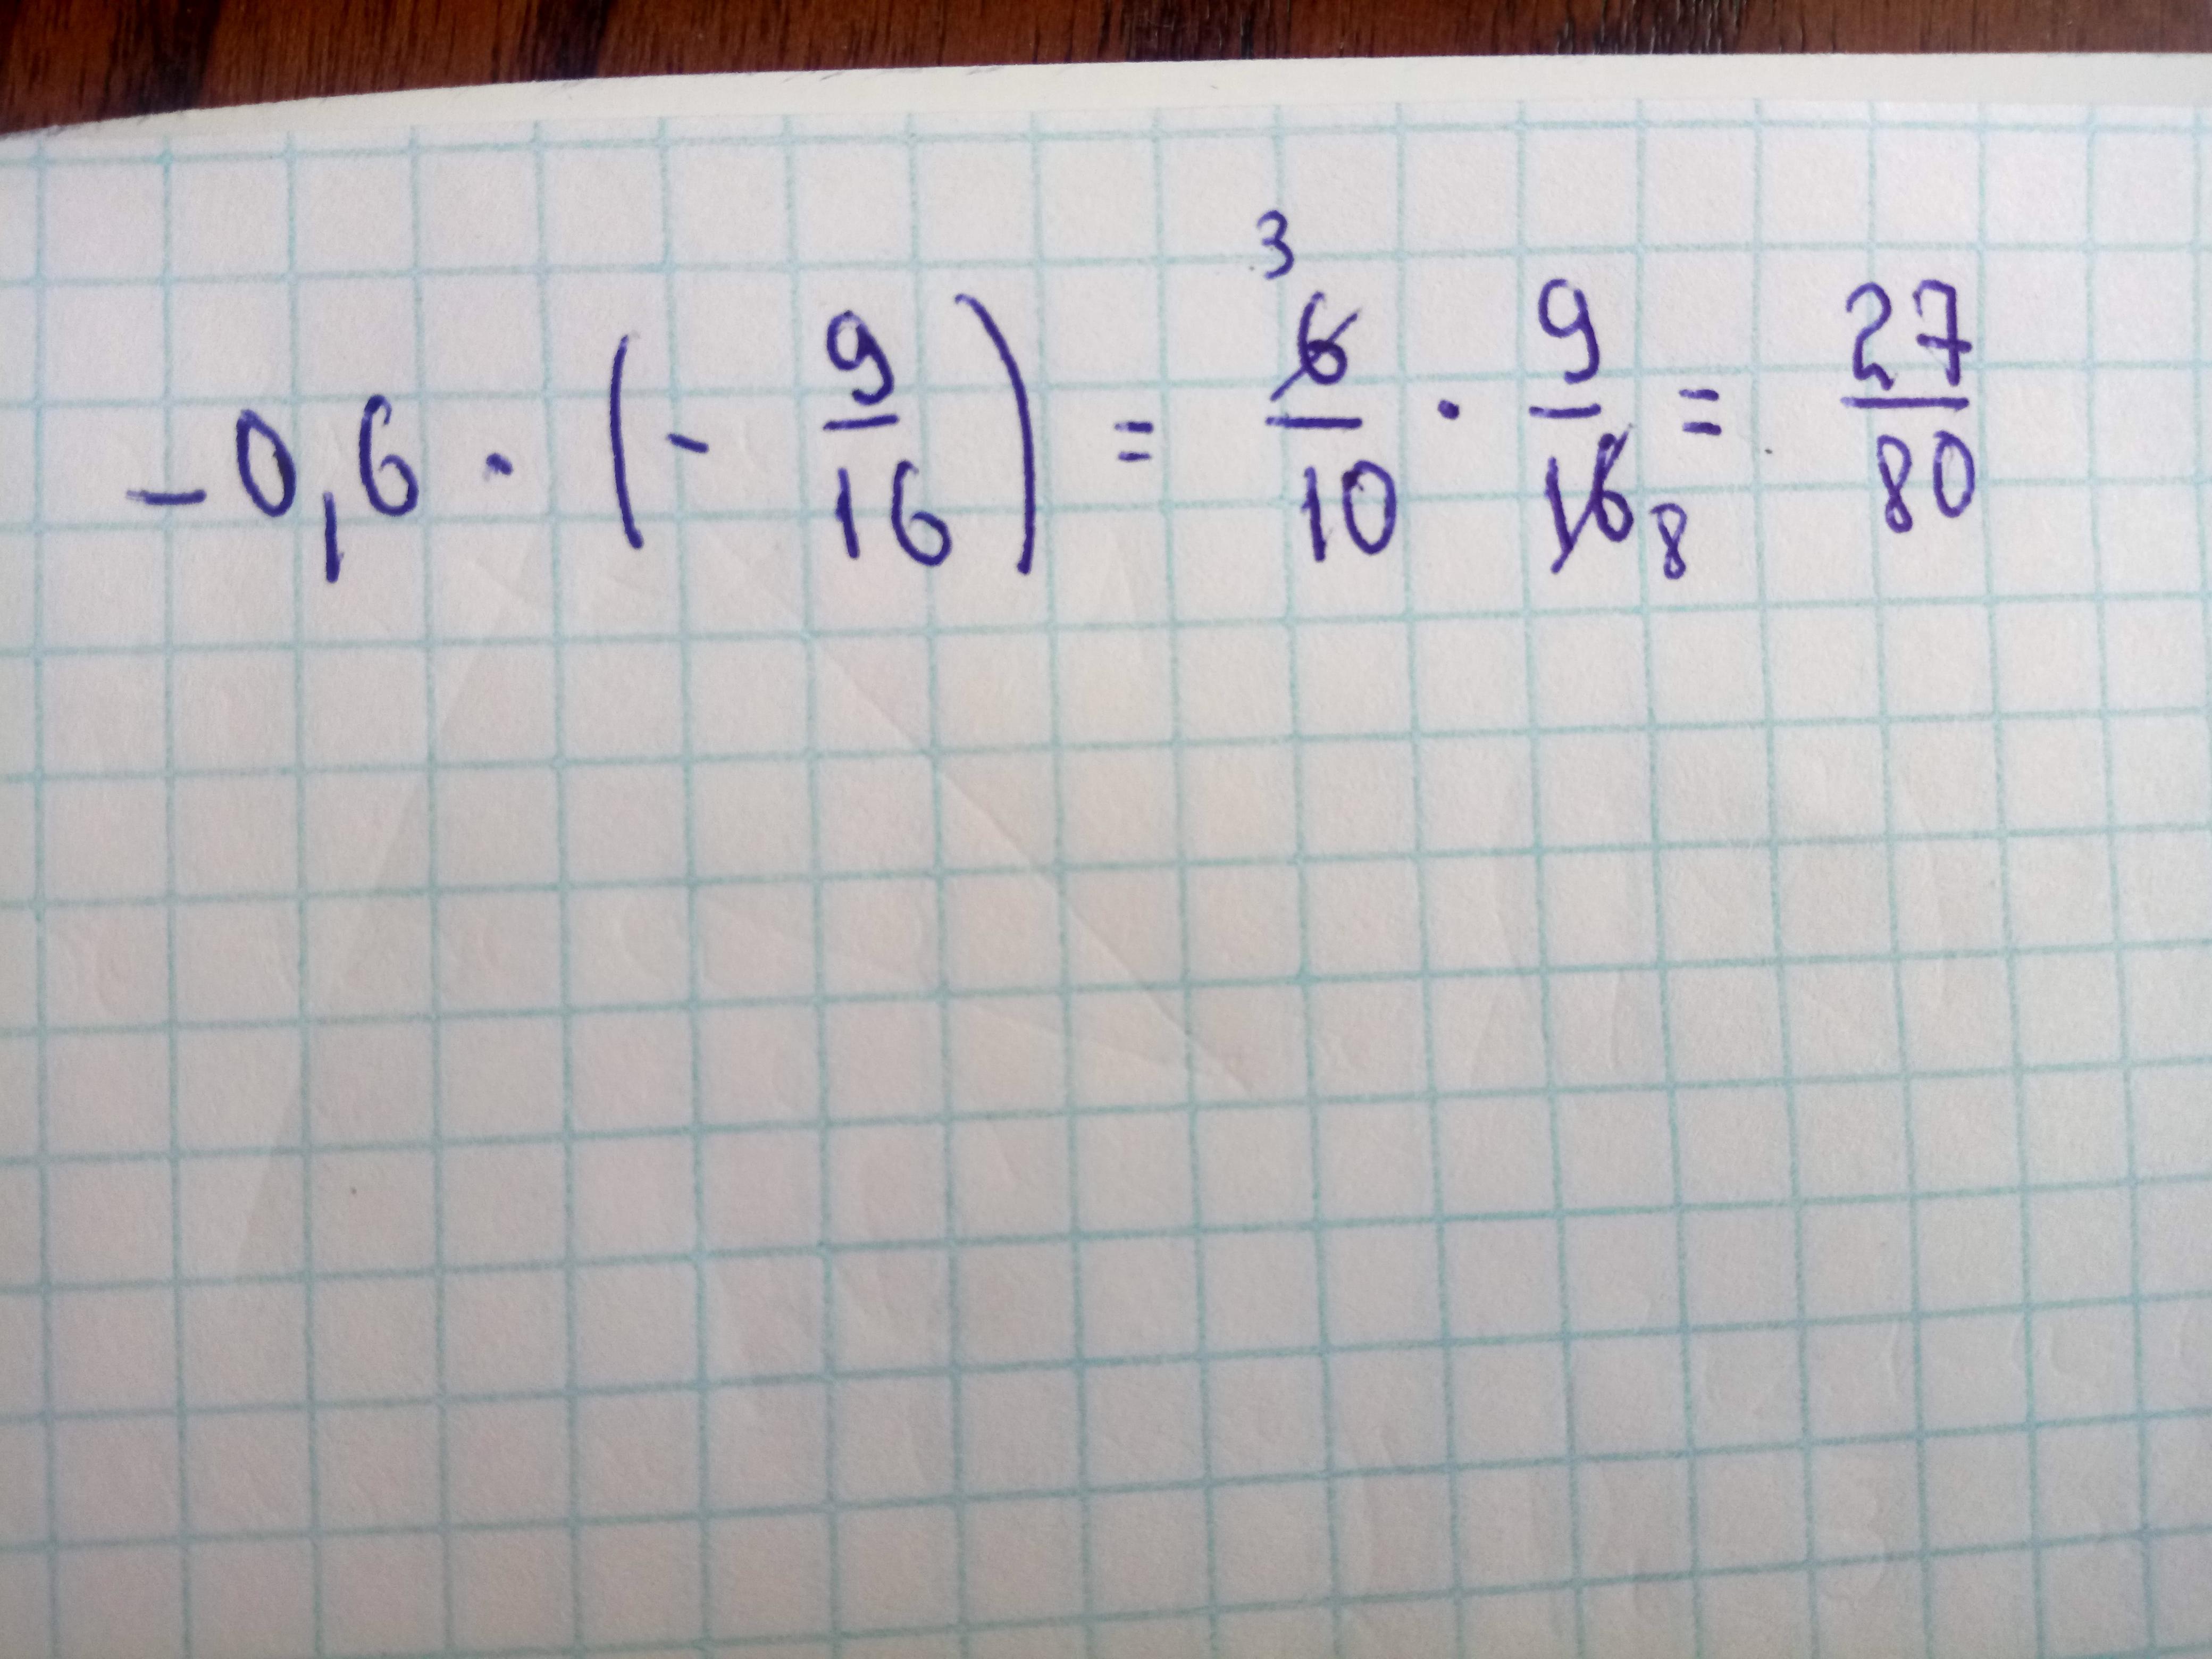 -0,6 · (- 9/16) = 6/10 3 · 9/16 8 = 27/80